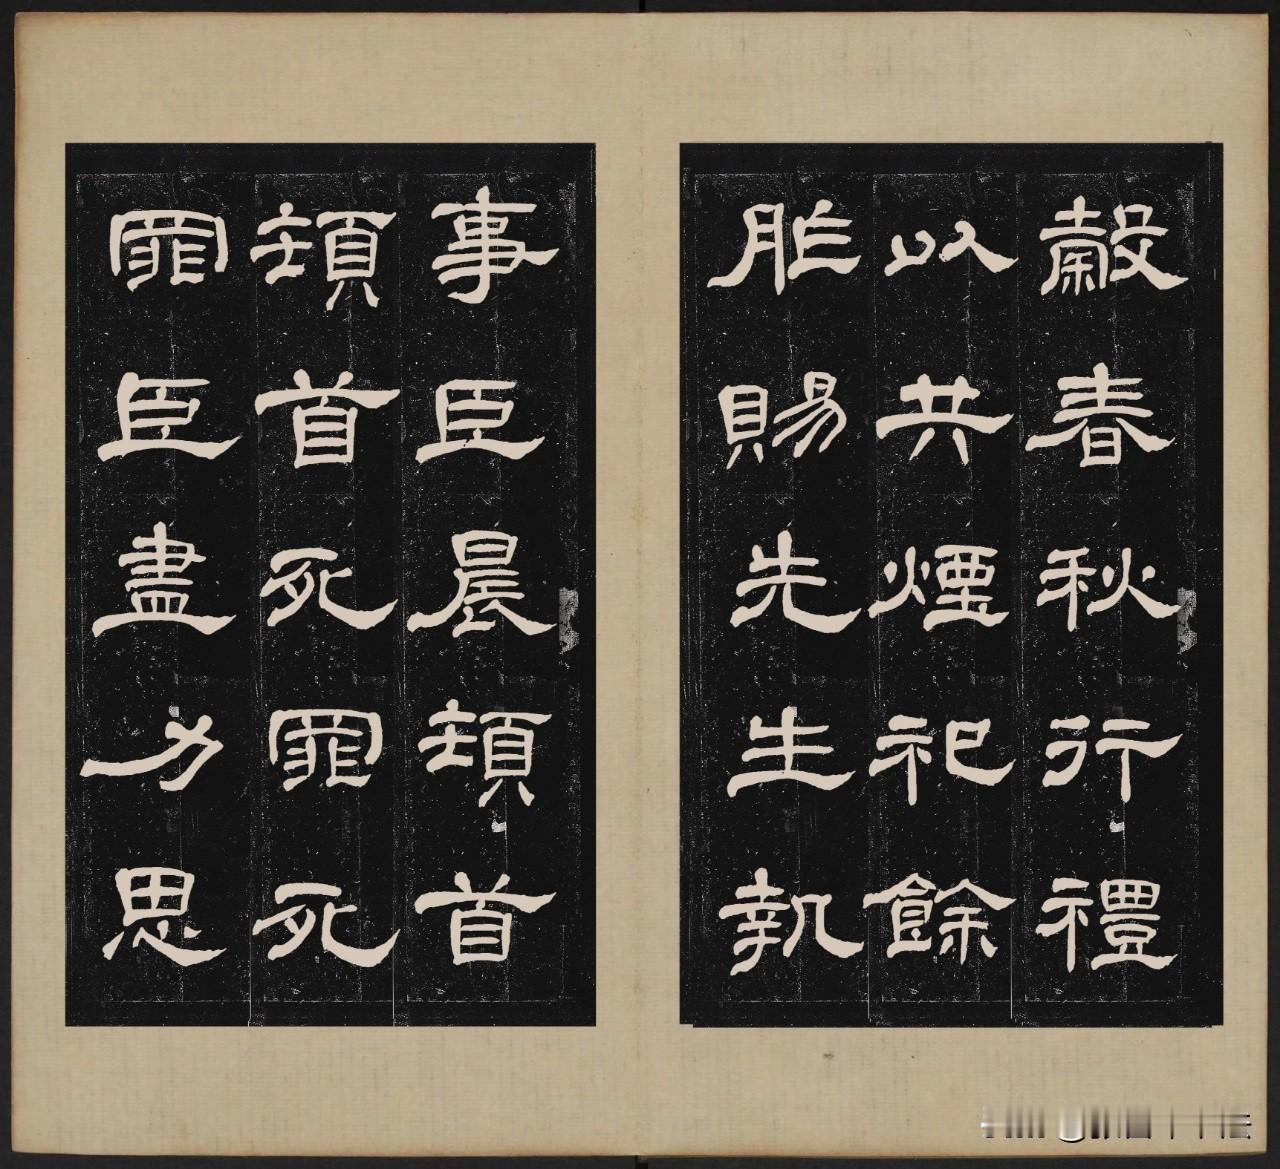 穀春秋行禮
以共煙祀餘
胙賜先生執
事臣晨頓首
頓首死罪死
罪臣盡力思